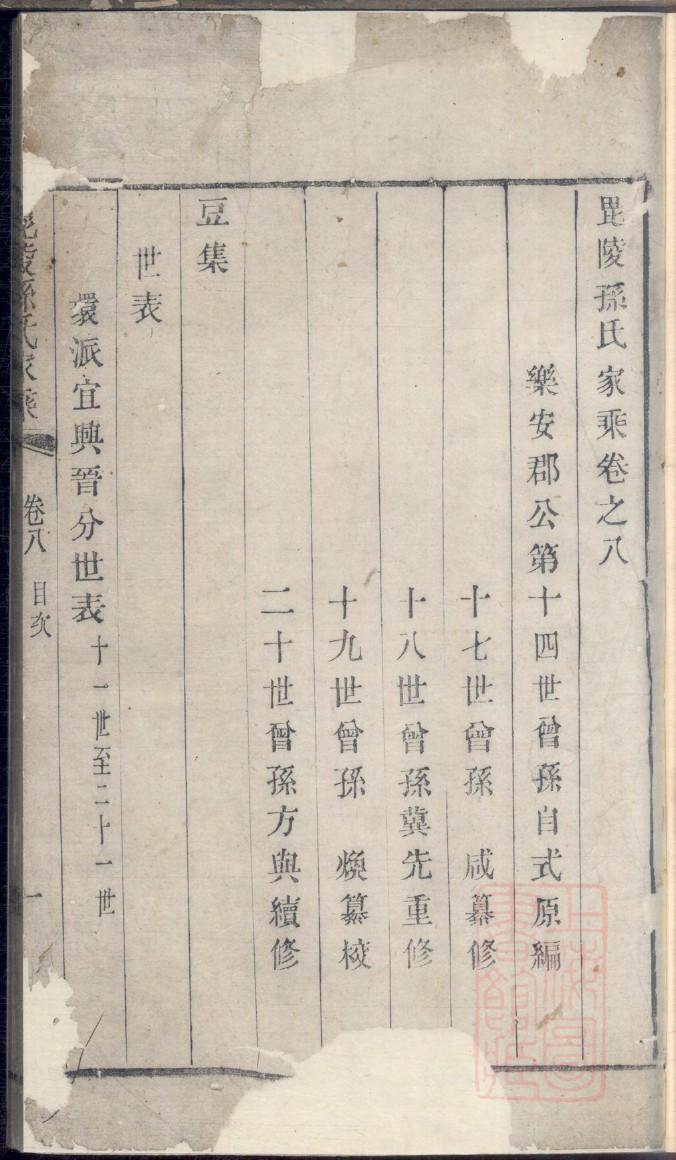 毘陵孫氏家乘卷之八
樂安郡公第十四世曾孫自式原編
十七世曾孫 咸纂修
十八世曾孫冀先重修
十九世曾孫 煥纂校
二十世曾孫方與續修
豆集
世表
環派宜興晉分世表十一世至二十一世
毘陵孫氏家乘 卷八 目次 一